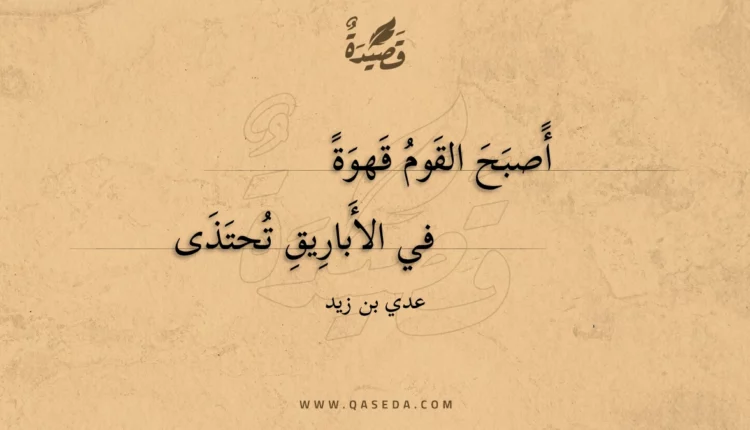 قَصِيْدَةٌ
أًَصبَحَ القَومُ قَهوَةً
في الأَبارِيقِ تُحتَذَى
عدي بن زيد
WWW.QASEDA.COM